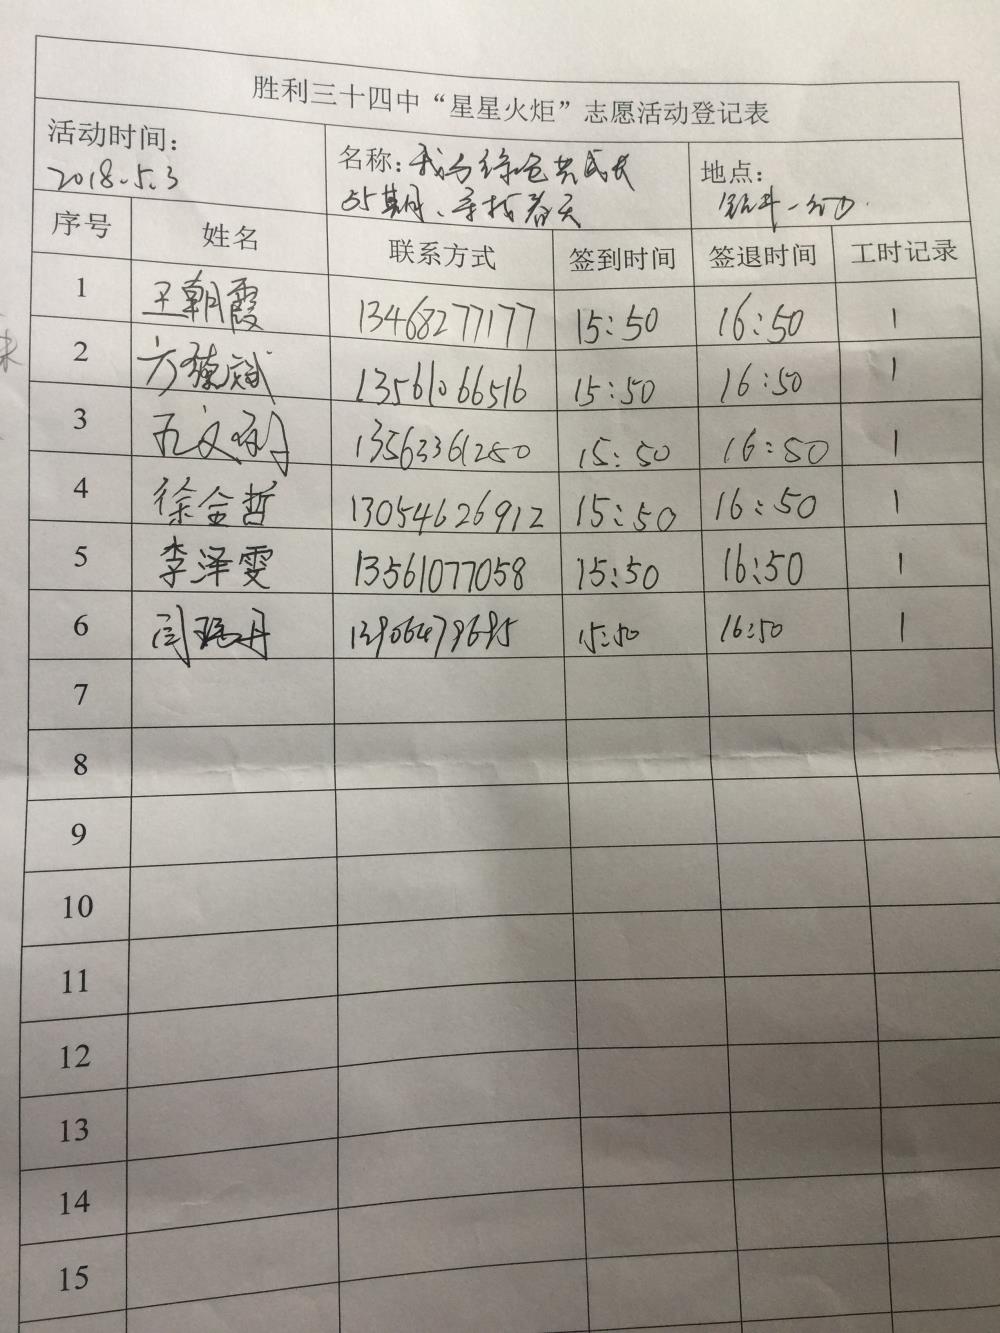 胜利三十四中“星星火炬”志愿活动登记表
活动时间： 名称：我与绿色共成长 地点：
2018.5.3 55期、寻找春天
序号 姓名 联系方式 签到时间 签退时间 工时记录
1 王朝霞 13468277177 15:50 16:50 1
2 13561066516 15:50 16:50 1
3 13563361250 15:50 16:50 1
4 徐金哲 13054626912 15:50 16:50 1
5 李泽雯 13561077058 15:50 16:50 1
6 15:50 16:50 1
7
8
9
10
11
12
13
14
15